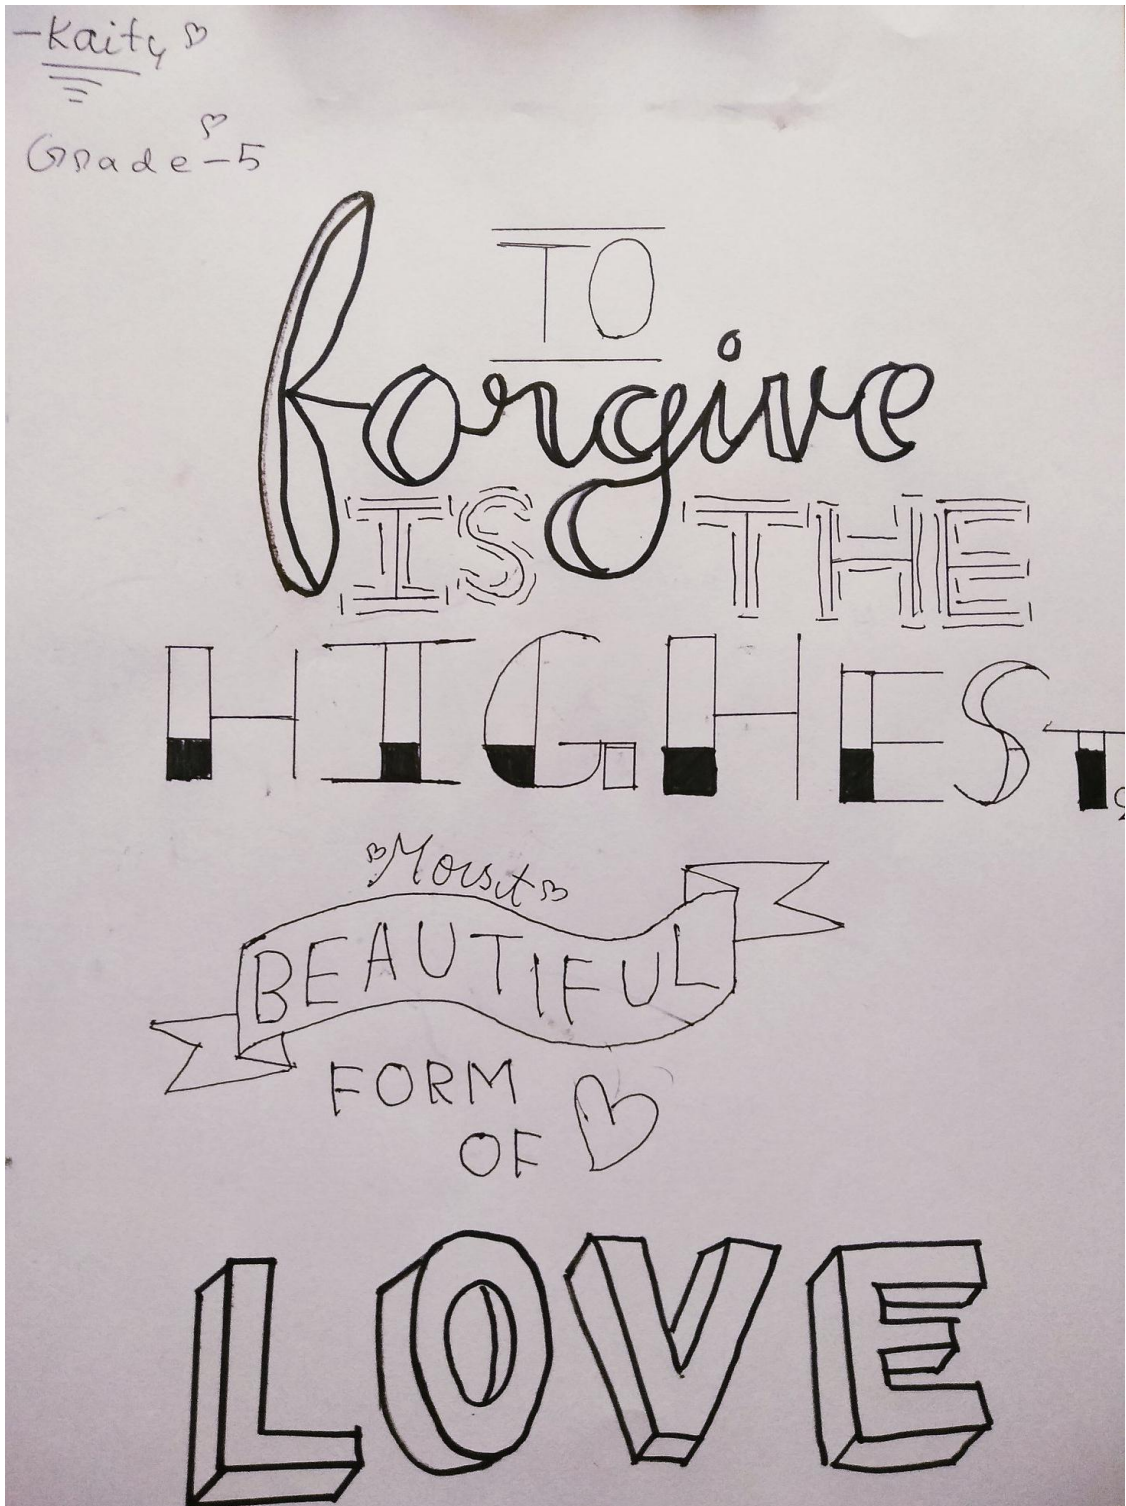 -Kaity
Grade-5
TO
forgive
IS THE
HIGHEST,
Morst
BEAUTIFUL
FORM
OF
LOVE